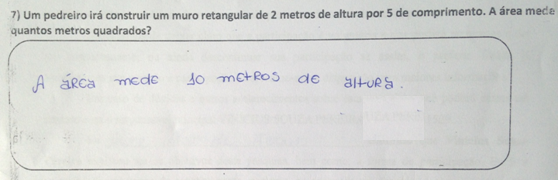 7) Um pedreiro irá construir um muro retangular de 2 metros de altura por 5 de comprimento. A área mede
quantos metros quadrados?
A área mede 10 metros de altura.